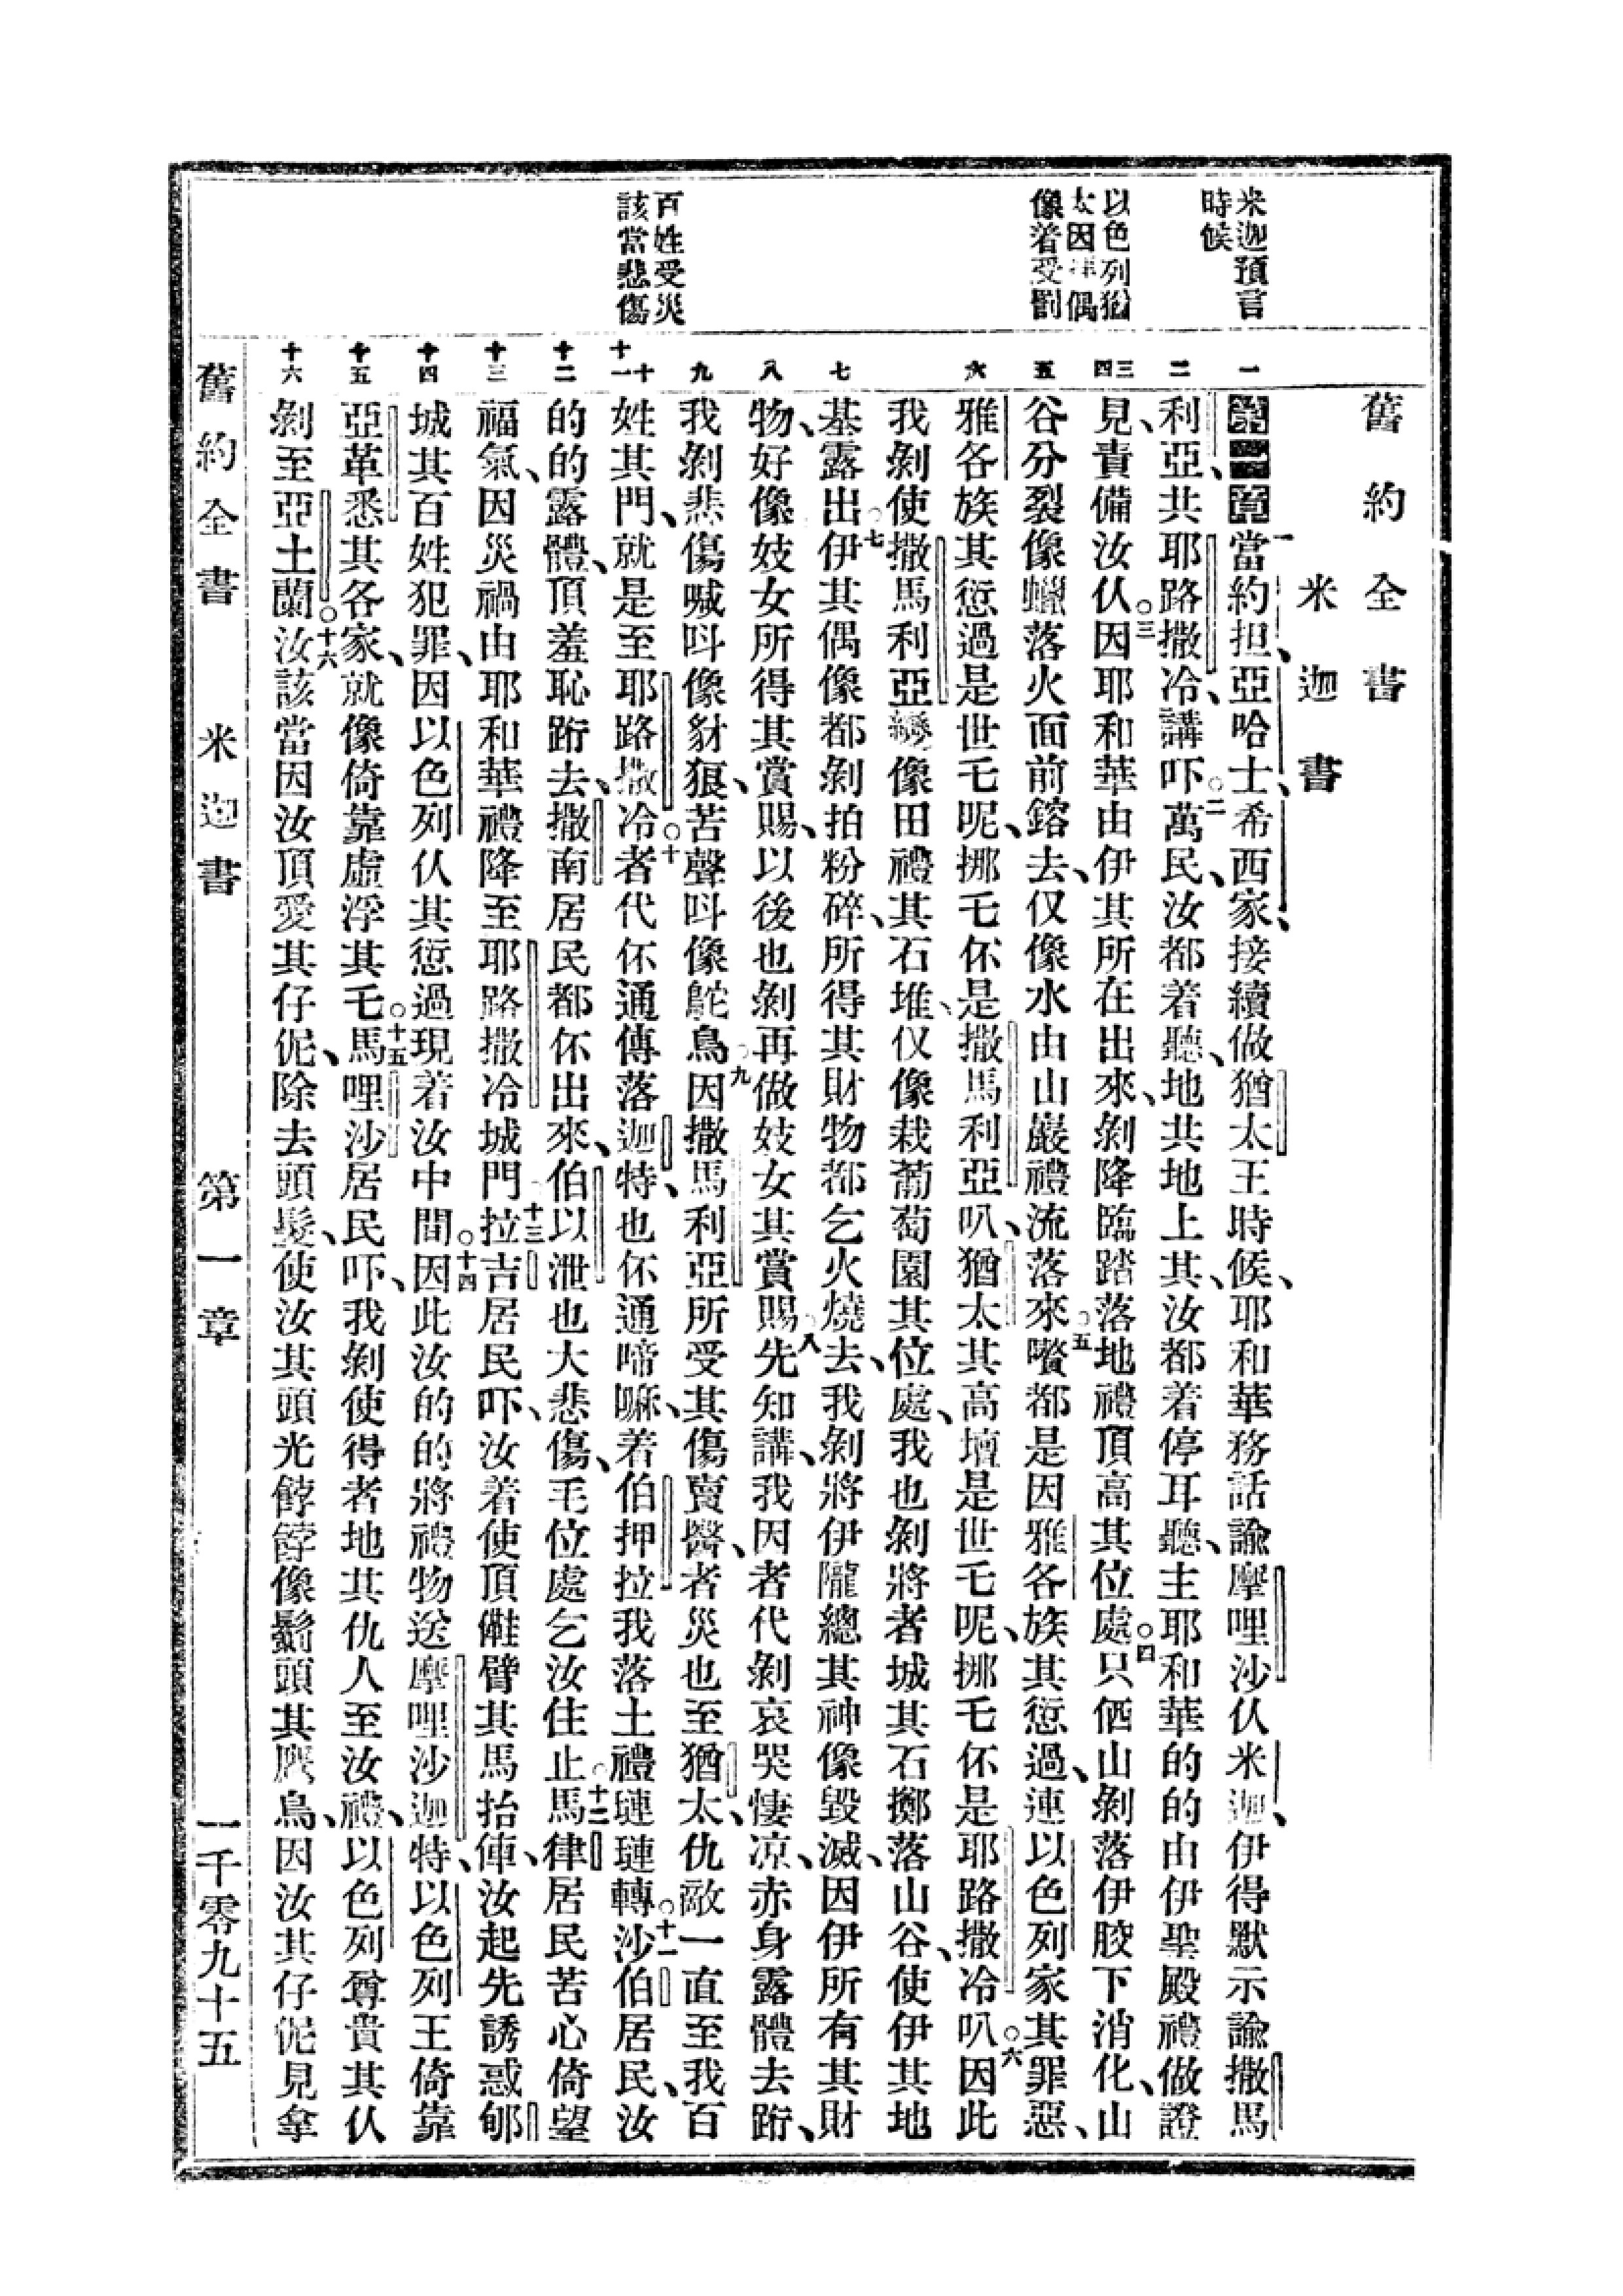 舊約全書
米迦書
米迦預言
時候
以色列猶
太因拜偶
像着受罰
百姓受災
該當悲傷
一
二
三
四
五
六
七
八
九
十
十一
十二
十三
十四
十五
十六
第一章當約担、亞哈士、希西家、接續做猶太王時候、耶和華務話諭摩哩沙仈米迦、伊得默示諭撒馬
利亞、共耶路撒冷、講○二吓萬民、汝都着聽、地共地上其、汝都着停耳聽、主耶和華的的由伊聖殿禮做證
見、責備汝仈○三因耶和華由伊其所在出來、剝降臨踏落地禮頂高其位處○四只佰山剝落伊骹下消化、山
谷分裂像蠟落火面前鎔去、仅像水由山巖禮流落來○五嚽都是因雅各族其愆過、連以色列家其罪惡、
雅各族其愆過是世乇呢、挪乇伓是撒馬利亞叭、猶太其高壇是世乇呢、挪乇伓是耶路撒冷叭○六因此
我剝使撒馬利亞變像田禮其石堆、仅像栽葡萄園其位處、我也剝將者城其石擲落山谷、使伊其地
基露出○七伊其偶像都剝拍粉碎、所得其財物都乞火燒去、我剝將伊隴總其神像毀滅、因伊所有其財
物、好像妓女所得其賞賜、以後也剝再做妓女其賞賜○八先知講、我因者代剝哀哭悽凉、赤身露體去跔、
我剝悲傷喊呌像豺狼、苦聲呌像鴕鳥○九因撒馬利亞所受其傷賣醫、者災也至猶太、仇敵一直至我百
姓其門、就是至耶路撒冷○十者代伓通傳落迦特、也伓通啼嘛、着伯押拉我落土禮璉璉轉○十一沙伯居民、汝
的的露體、頂羞恥跔去、撒南居民都伓出來、伯以泄也大悲傷、毛位處乞汝住止○十二馬律居民苦心倚望
福氣、因災禍由耶和華禮降至耶路撒冷城門○十三拉吉居民吓、汝着使頂㒧臂其馬抬俥、汝起先誘惑郇
城其百姓犯罪、因以色列仈其愆過現着汝中間○十四因此汝的的將禮物送摩哩沙迦特、以色列王倚靠
亞革悉其各家、就像倚靠虛浮其乇○十五馬哩沙居民吓、我剝使得者地其仇人至汝禮、以色列尊貴其仈
剝至亞土蘭○十六汝該當因汝頂愛其仔伲、除去頭髮、使汝其頭光餑餑像鬎頭其鷹鳥、因汝其仔伲見拿
舊約全書 米迦書 第一章 一千零九十五